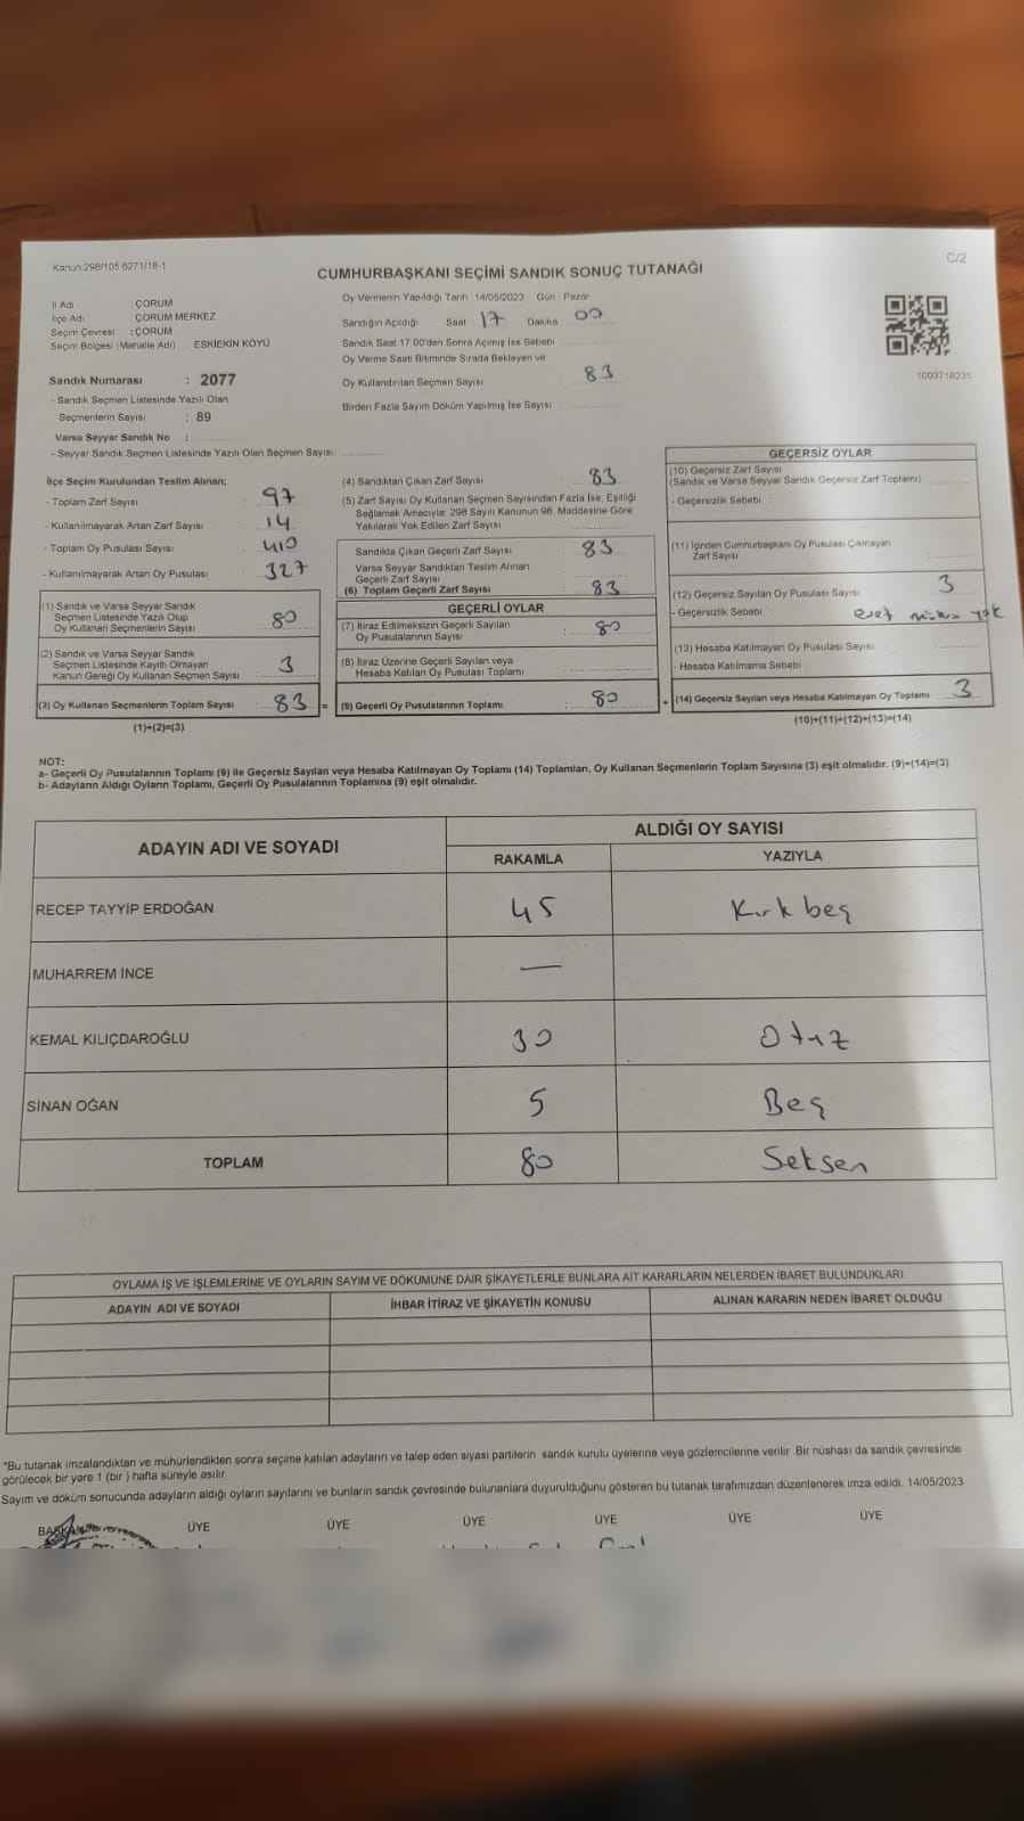 Kanun:298/105 6271/18-1
C/2
CUMHURBAŞKANI SEÇİMİ SANDIK SONUÇ TUTANAĞI
İl Adı : ÇORUM
İlçe Adı : ÇORUM MERKEZ
Seçim Çevresi : ÇORUM
Seçim Bölgesi (Mahalle Adı) : ESKİEKİN KÖYÜ
Sandık Numarası : 2077
- Sandık Seçmen Listesinde Yazılı Olan
Seçmenlerin Sayısı : 89
Varsa Seyyar Sandık No :
- Seyyar Sandık Seçmen Listesinde Yazılı Olan Seçmen Sayısı
Oy Vermenin Yapıldığı Tarih 14/05/2023 Gün : Pazar
Sandığın Açıldığı Saat 17 Dakika 00
Sandık Saat 17.00'den Sonra Açılmış İse Sebebi
Oy Verme Saati Bitiminde Sırada Bekleyen ve
Oy Kullandırılan Seçmen Sayısı 83
Birden Fazla Sayım Döküm Yapılmış İse Sayısı
1003718235
İlçe Seçim Kurulundan Teslim Alınan;
- Toplam Zarf Sayısı 97
- Kullanılmayarak Artan Zarf Sayısı 14
- Toplam Oy Pusulası Sayısı 410
- Kullanılmayarak Artan Oy Pusulası 327
(1) Sandık ve Varsa Seyyar Sandık
Seçmen Listesinde Yazılı Olup
Oy Kullanan Seçmenlerin Sayısı 80
(2) Sandık ve Varsa Seyyar Sandık
Seçmen Listesinde Kayıtlı Olmayan
Kanun Gereği Oy Kullanan Seçmen Sayısı 3
(3) Oy Kullanan Seçmenlerin Toplam Sayısı 83 =
(1)+(2)=(3)
(4) Sandıktan Çıkan Zarf Sayısı 83
(5) Zarf Sayısı Oy Kullanan Seçmen Sayısından Fazla İse, Eşitliği
Sağlamak Amacıyla; 298 Sayılı Kanunun 98. Maddesine Göre
Yakılarak Yok Edilen Zarf Sayısı
Sandıkta Çıkan Geçerli Zarf Sayısı 83
Varsa Seyyar Sandıktan Teslim Alınan
Geçerli Zarf Sayısı
(6) Toplam Geçerli Zarf Sayısı 83
GEÇERLİ OYLAR
(7) İtiraz Edilmeksizin Geçerli Sayılan
Oy Pusulalarının Sayısı : 80
(8) İtiraz Üzerine Geçerli Sayılan veya
Hesaba Katılan Oy Pusulası Toplamı
(9) Geçerli Oy Pusulalarının Toplamı : 80 +
GEÇERSİZ OYLAR
(10) Geçersiz Zarf Sayısı
(Sandık ve Varsa Seyyar Sandık Geçersiz Zarf Toplamı)
- Geçersizlik Sebebi
(11) İçinden Cumhurbaşkanı Oy Pusulası Çıkmayan
Zarf Sayısı
(12) Geçersiz Sayılan Oy Pusulası Sayısı 3
- Geçersizlik Sebebi evet mührü yok
(13) Hesaba Katılmayan Oy Pusulası Sayısı
- Hesaba Katılmama Sebebi
(14) Geçersiz Sayılan veya Hesaba Katılmayan Oy Toplamı 3
(10)+(11)+(12)+(13)=(14)
NOT:
a- Geçerli Oy Pusulalarının Toplamı (9) ile Geçersiz Sayılan veya Hesaba Katılmayan Oy Toplamı (14) Toplamları, Oy Kullanan Seçmenlerin Toplam Sayısına (3) eşit olmalıdır. (9)+(14)=(3)
b- Adayların Aldığı Oyların Toplamı, Geçerli Oy Pusulalarının Toplamına (9) eşit olmalıdır.
ADAYIN ADI VE SOYADI
ALDIĞI OY SAYISI
RAKAMLA YAZIYLA
RECEP TAYYİP ERDOĞAN 45 Kırkbeş
MUHARREM İNCE —
KEMAL KILIÇDAROĞLU 30 Otuz
SİNAN OĞAN 5 Beş
TOPLAM 80 Seksen
OYLAMA İŞ VE İŞLEMLERİNE VE OYLARIN SAYIM VE DÖKÜMÜNE DAİR ŞİKAYETLERLE BUNLARA AİT KARARLARIN NELERDEN İBARET BULUNDUKLARI
ADAYIN ADI VE SOYADI İHBAR İTİRAZ VE ŞİKAYETİN KONUSU ALINAN KARARIN NEDEN İBARET OLDUĞU
*Bu tutanak imzalandıktan ve mühürlendikten sonra seçime katılan adayların ve talep eden siyasi partilerin sandık kurulu üyelerine veya gözlemcilerine verilir. Bir nüshası da sandık çevresinde
görülecek bir yere 1 (bir) hafta süreyle asılır.
Sayım ve döküm sonucunda adayların aldığı oyların sayılarını ve bunların sandık çevresinde bulunanlara duyurulduğunu gösteren bu tutanak tarafımızdan düzenlenerek imza edildi. 14/05/2023
BAŞKAN ÜYE ÜYE ÜYE ÜYE ÜYE ÜYE